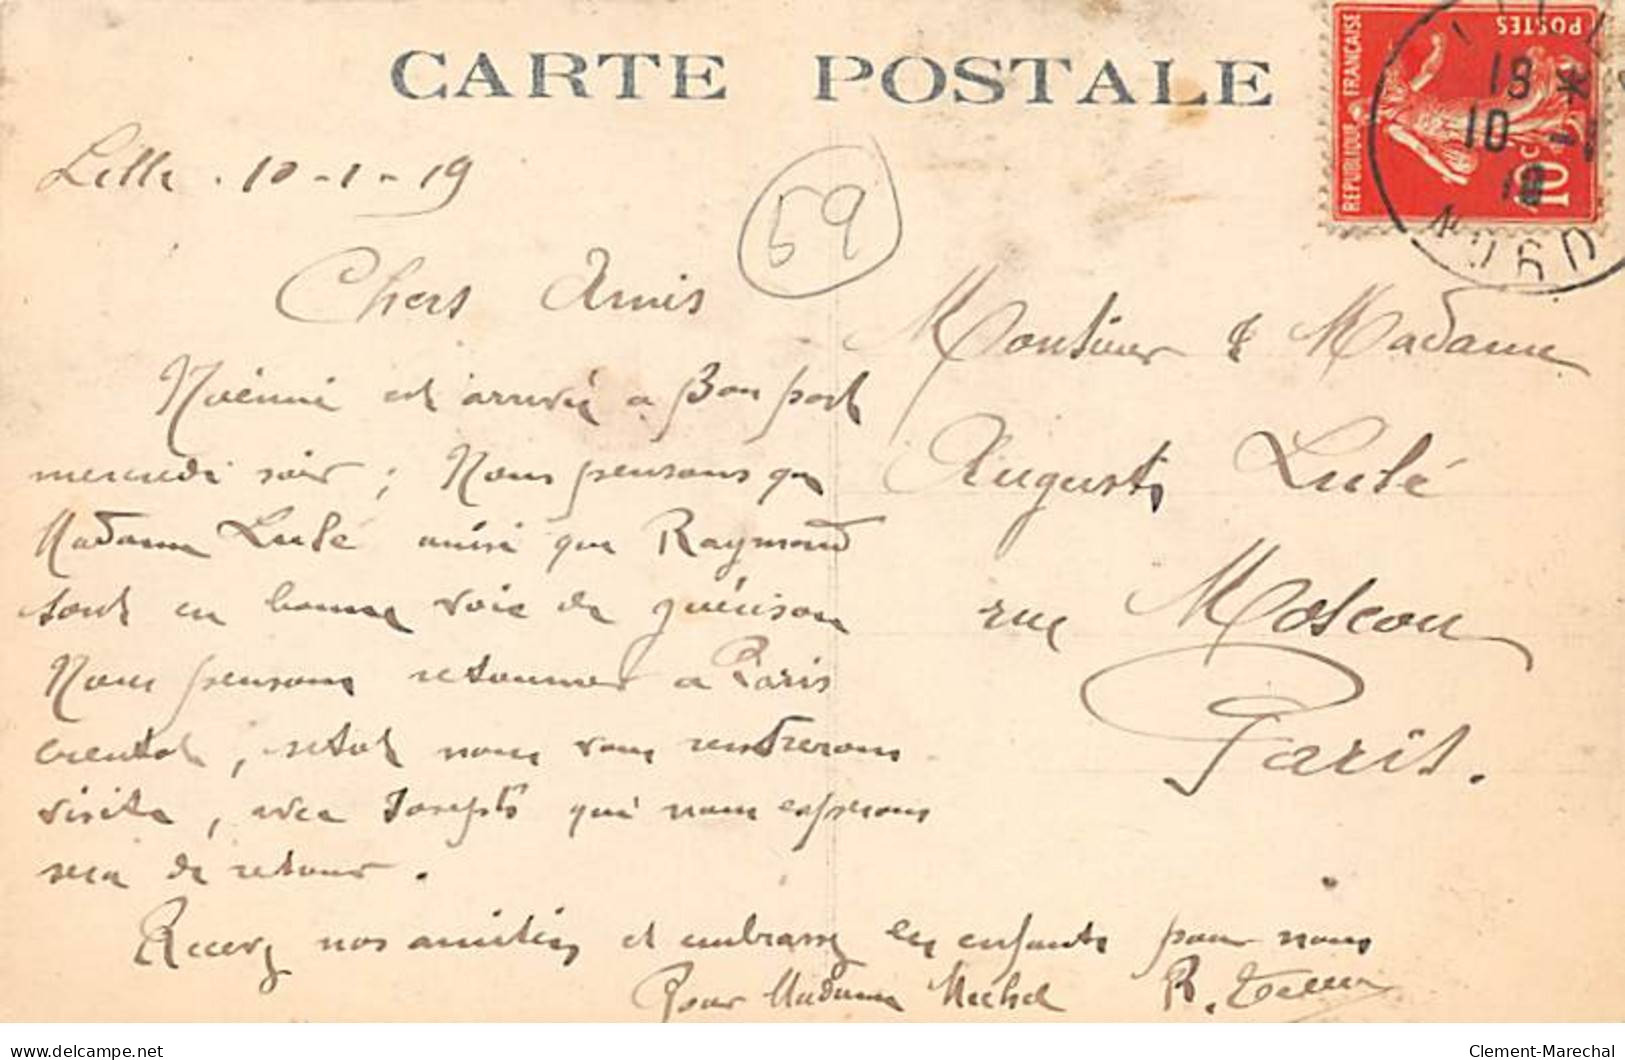 CARTE POSTALE
REPUBLIQUE FRANÇAISE
POSTES
10c
18 *
10 - 1
NORD
Lille . 10-1-19
59
Chers Amis
Noémie est arrivée a Bon port
mercredi soir ; Nous pensons que
Madame Lulé ainsi que Raymond
sont en bonne voie de guérison
Nous pensons retourner a Paris
bientot, sitot nous vous rentrerons
visite, avec Joseph qui nous esperons
sera de retour.
Recevez nos amitiés et embrassez les enfants pour nous
Pour Madame Michel R.
Monsieur & Madame
Auguste Lulé
rue Moscou
Paris.
delcampe.net
Clement-Marechal